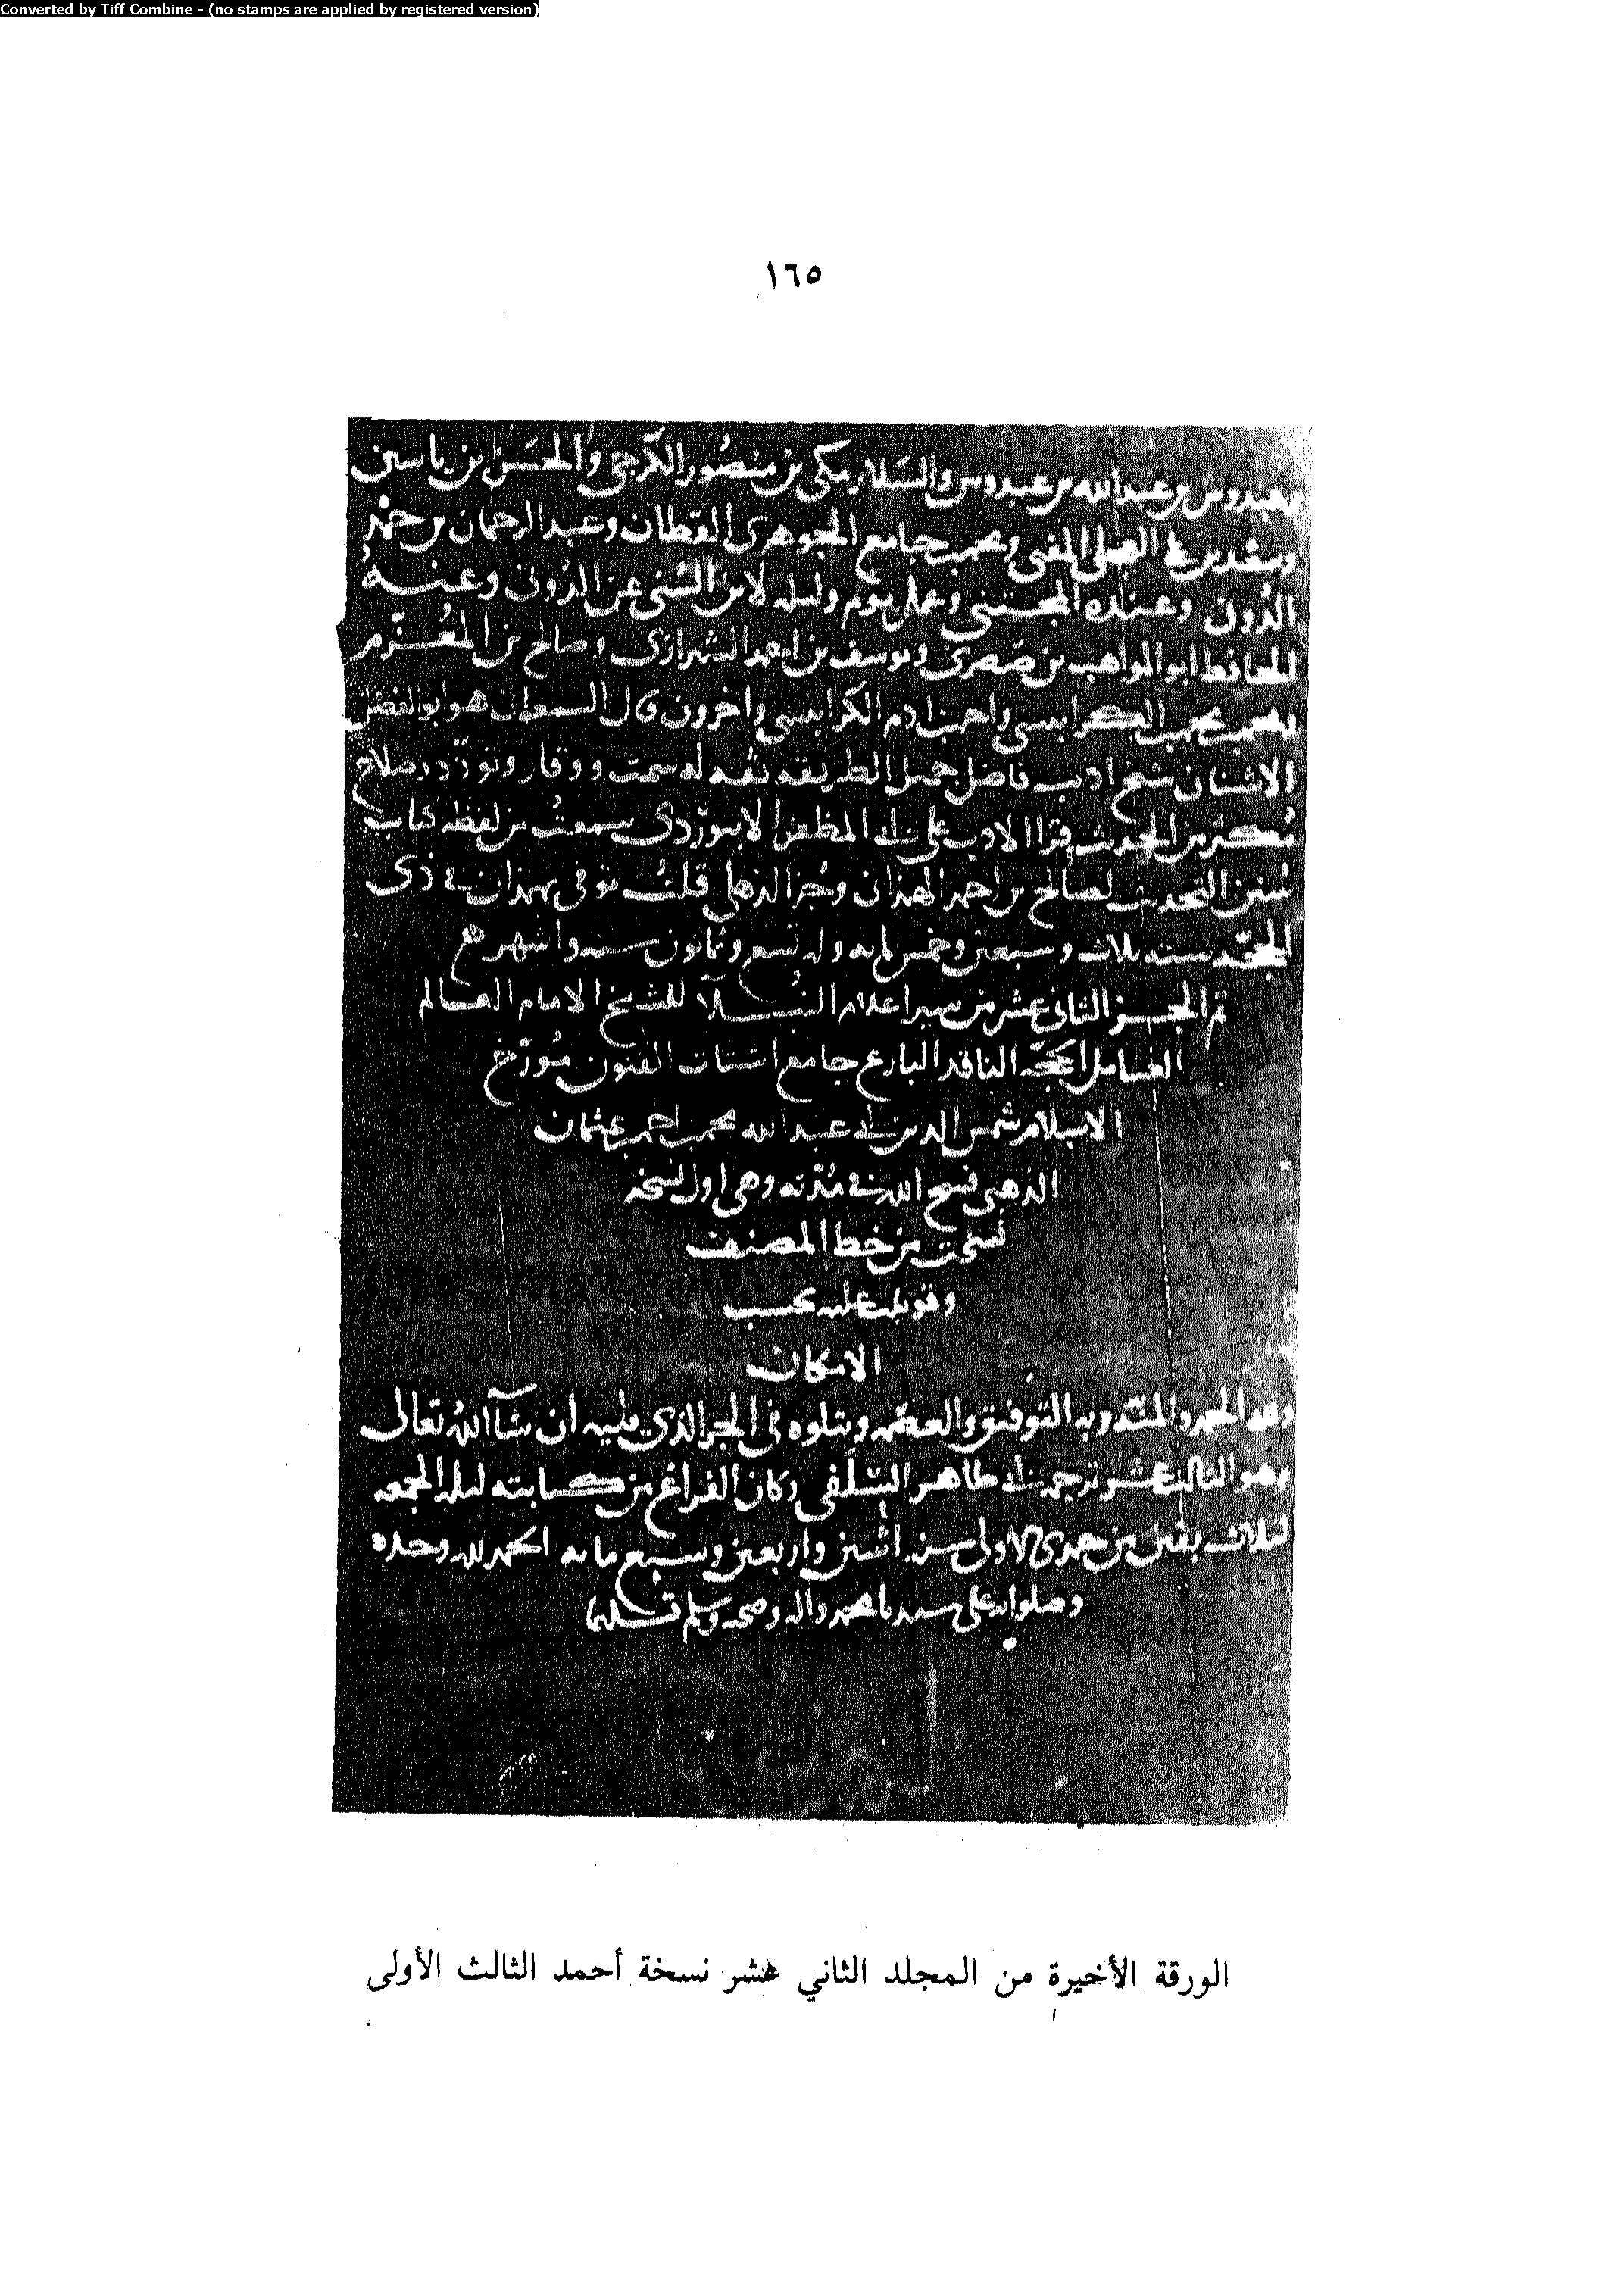 Converted by Tiff Combine - (no stamps are applied by registered version)
١٦٥
عبدوس بن عبد الله بن عبدوس والسلار مكي بن منصور الكرجي والحسن بن ياسين
وسعد بن علي العجلي المفتي ومحمد بن جامع الجوهري القطان وعبد الرحمان بن حمد
الدوني وعنده المجتنى وعمل يوم وليله لابن السني عن الدوني وعنه
الحافظ ابو المواهب بن صصرى ويوسف بن احمد الشيرازي وصالح بن المعزم
ومحمد بن محمد الكرابيسي واحمد بن ادم الكرابيسي واخرون قال السمعاني هو ابو الفضل
الاشناني شيخ اديب فاضل جميل الطريقه ثقه له سمت ووقار وتودد وصلاح
مكثر من الحديث قرا الادب على ابي المظفر الابيوردي سمعت من لفظه كتاب
سنن التحديث لصالح بن احمد الهمذاني وجزء الذهلي قلت توفي بهمذان في ذي
الحجه سنه ثلاث وسبعين وخمس مايه وله تسع وثمانون سنه واشهر
تم الجزء الثاني عشر من سير اعلام النبلاء للشيخ الامام العالم
العامل الحجه الناقد البارع جامع اشتات الفنون مؤرخ
الاسلام شمس الدين ابي عبد الله محمد بن احمد بن عثمان
الذهبي فسح الله في مدته وهي اول نسخه
نسخت من خط المصنف
وقوبلت عليه بحسب
الامكان
ولله الحمد والمنه وبه التوفيق والعصمه ويتلوه في الجزء الذي يليه ان شاء الله تعالى
وهو الثالث عشر ترجمه ابي طاهر السلفي وكان الفراغ من كتابته ليله الجمعه
لثلاث بقين من جمدى الاولى سنه اثنين واربعين وسبع مايه الحمد لله وحده
وصلواته على سيدنا محمد واله وصحبه وسلم تسليما
الورقة الأخيرة من المجلد الثاني عشر نسخة أحمد الثالث الأولى